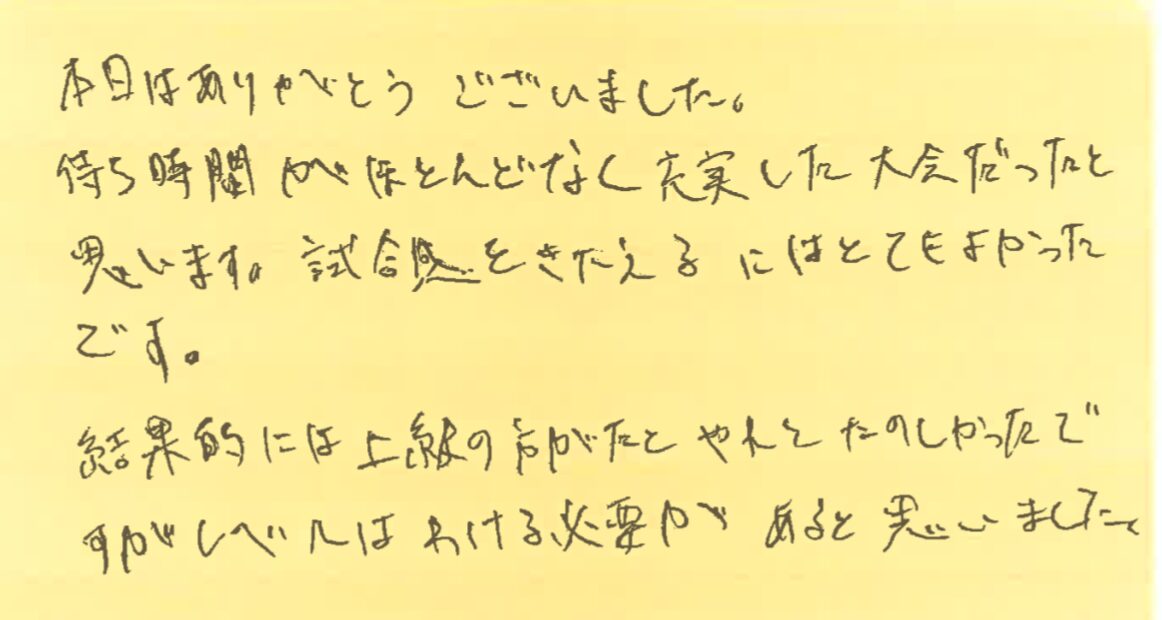 本日はありがとうございました。
待ち時間がほとんどなく充実した大会だったと
思います。試合感をきたえるにはとてもよかった
です。
結果的には上級の方がたとやれてたのしかったで
すがレベルはわける必要があると思いました。